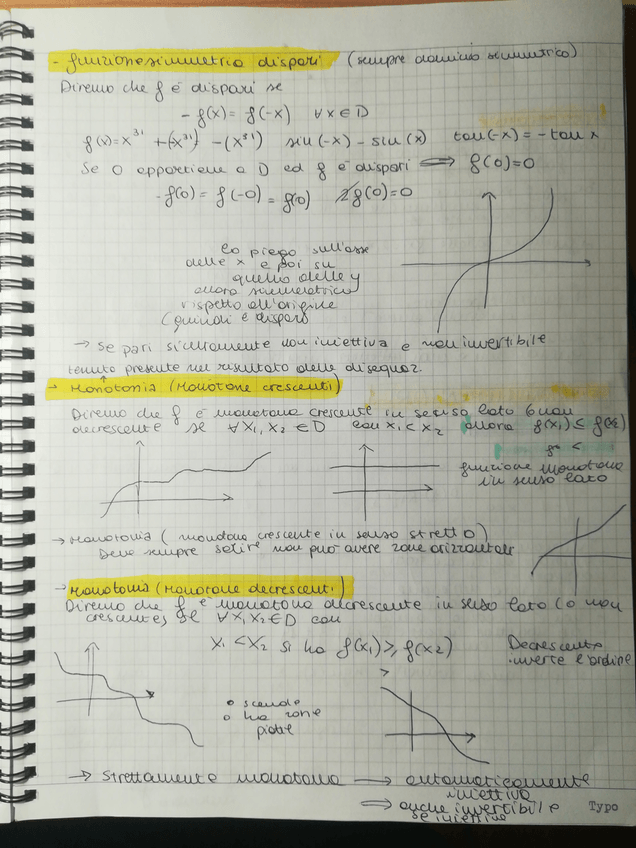 - funzione simmetria dispari (sempre dominio simmetrico)
Diremo che f è dispari se
- f(x) = f(-x) ∀x∈D
f(x)=x³¹ +(-x³¹) -(x³¹) sin(-x) - sin(x) tan(-x) = -tan x
Se 0 appartiene a D ed f è dispari ⟹ f(0)=0
-f(0) = f(-0) = f(0) 2f(0)=0
lo piego sull'asse
delle x e poi su
quello delle y
allora simmetrico
rispetto all'origine
(quindi è dispari)
→ Se pari sicuramente non iniettiva e non invertibile
tenuto presente nel risultato delle disequaz.
→ Monotonia (Monotone crescenti)
Diremo che f è monotona crescente in senso lato o non
decrescente se ∀x₁,x₂ ∈ D con x₁<x₂ allora f(x₁) ≤ f(x₂)
<
funzione monotona
in senso lato
→ Monotonia (monotona crescente in senso stretto)
Deve sempre salire non può avere zone orizzontali
→ Monotonia (Monotone decrescenti)
Diremo che f è monotona decrescente in senso lato (o non
crescente) se ∀x₁,x₂∈D con
x₁<x₂ si ha f(x₁) ≥ f(x₂)
>
Decrescente
inverte l'ordine
• scende
• ha zone
piatte
→ Strettamente monotona → automaticamente
iniettiva
⟹ anche invertibile
se iniettiva
Typo